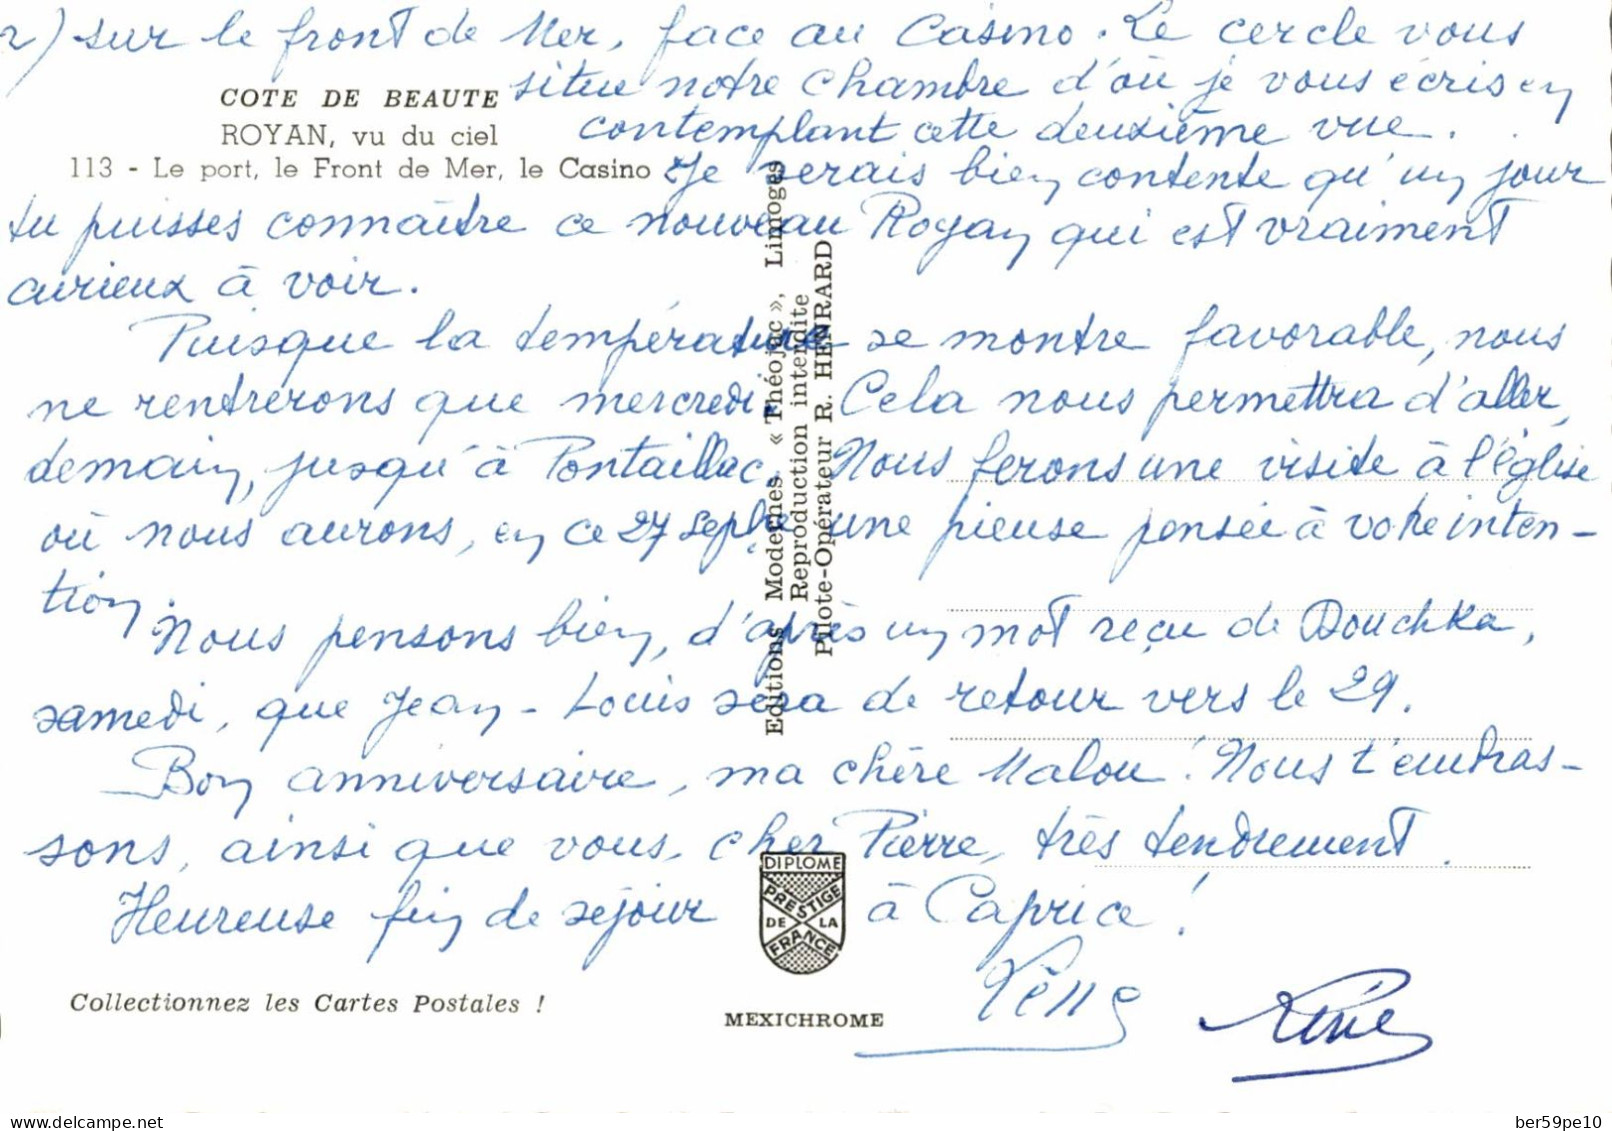 2) sur le front de Mer, face au Casino. Le cercle vous
situe notre chambre d'où je vous écris en
COTE DE BEAUTE
ROYAN, vu du ciel
contemplant cette deuxième vue.
113 - Le port, le Front de Mer, le Casino
Je serais bien contente qu'un jour
tu puisses connaître ce nouveau Royan qui est vraiment
curieux à voir.
Puisque la température se montre favorable, nous
ne rentrerons que mercredi. Cela nous permettra d'aller,
demain, jusqu'à Pontaillac. Nous ferons une visite à l'église
où nous aurons, en ce 27 septbre une pieuse pensée à votre inten-
tion.
Nous pensons bien, d'après un mot reçu de Douchka,
samedi, que Jean-Louis sera de retour vers le 29.
Bon anniversaire, ma chère Malou! Nous t'embras-
sons, ainsi que vous, cher Pierre, très tendrement.
Heureuse fin de séjour à Caprice!
René
Editions Modernes « Théojac », Limoges
Reproduction interdite
Pilote-Opérateur R. HENRARD
DIPLOME
PRESTIGE
DE LA
FRANCE
Collectionnez les Cartes Postales !
MEXICHROME
ber59pe10